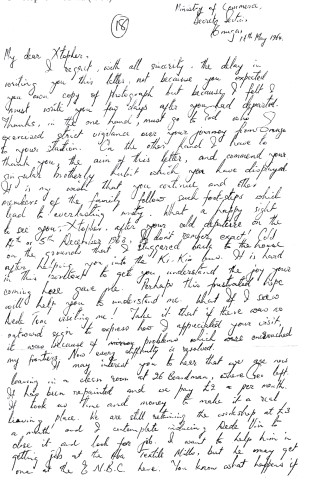 Ministry of Commerce,
Enugu,
14th May 1960.
(18)
My dear Xtopher,
I regret, with all sincerity, the delay in
writing you this letter, not because you expected
your own copy of photograph but because I felt I
must write you few days after you had departed.
Thanks, in the one hand, must go to God who
exercised strict vigilance over your journey from
to your station. On the other hand I have to
thank you, the aim of this letter, and commend your
singular motherly habit which you have displayed.
It is my wish that you continue and other
members of the family follow such footsteps which
lead to everlasting unity. What a happy sight
to see you, Xtopher, after your old departure on the
14th or 15th December 1962, I don't remember exact! but
on the grounds that I staggered back to the house
after helping you into the Ki-Kia bus. It is hard
in this to get you understand the joy your
coming here gave me. Perhaps this hope
will help you to understand me. What if I saw
Dede Tom visiting me! Take it that if there was no
outward sign to express how I appreciated your visit,
it was because of money problems which were
my fantasy. Now every difficulty is
I may interest you to hear that we are now
leaving in a clean room at 26 Boardman, where you left.
It has been repainted and we pay £2 per month.
It took me time and money to make it a real
leaving place. We are still retaining the workshop at £3
a month and I contemplate inducing Dede Tom to
close it and look for job. I want to help him in
getting job at the Aba Textile Mills, but he may get
one at the E.N.B.C. here. You know what happens if